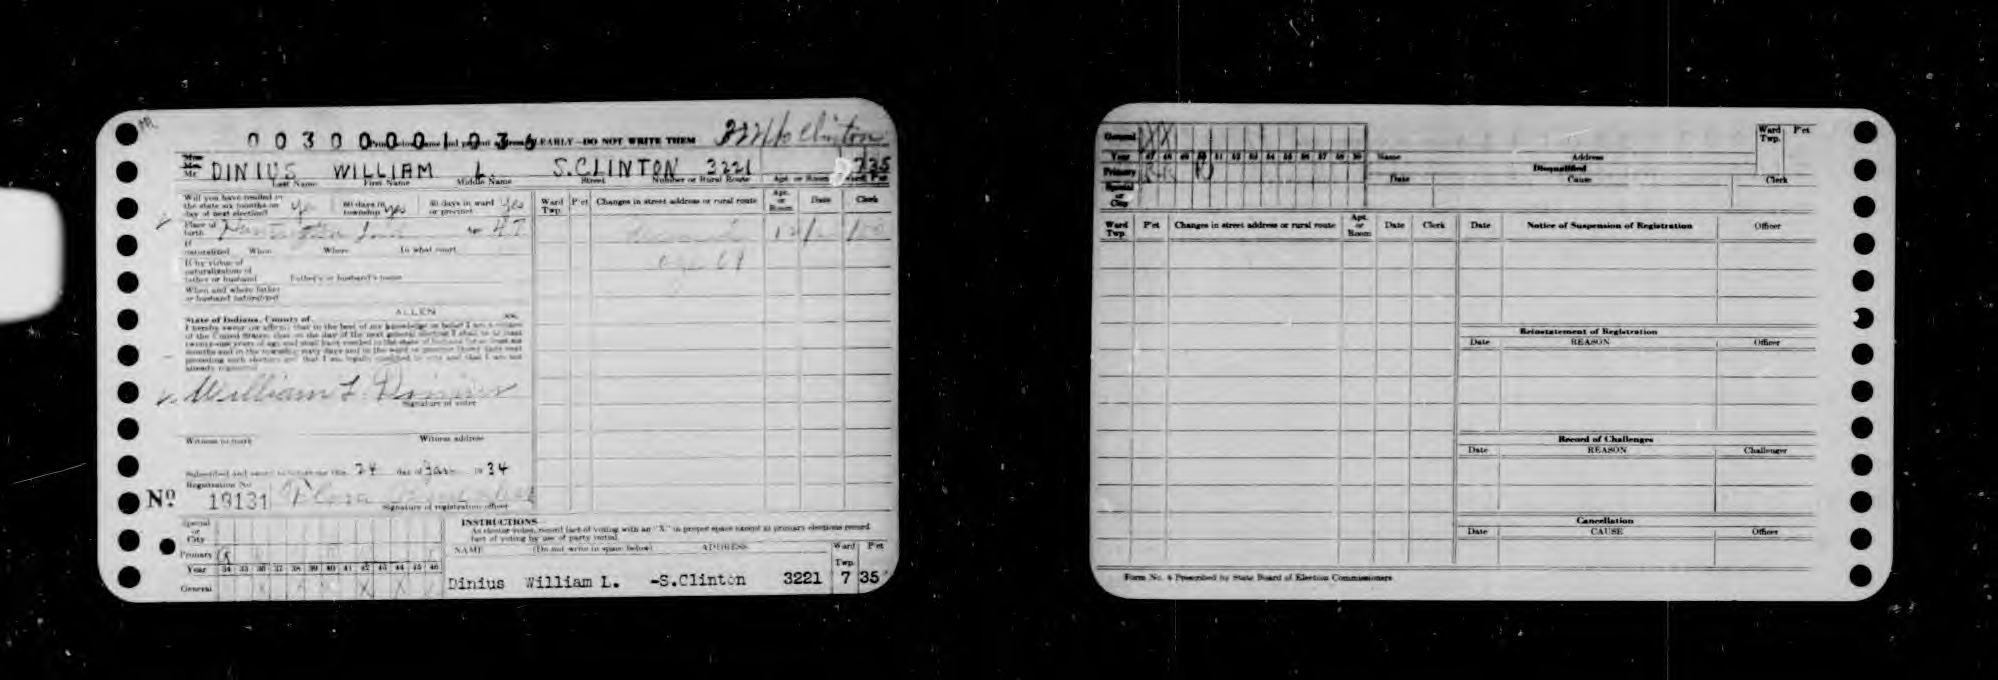 00300001034 EARLY—DO NOT WRITE THEM 3221 So Clinton
Miss
Mrs.
Mr. DINIUS WILLIAM L. S.CLINTON 3221 735
Last Name First Name Middle Name Street Number or Rural Route Apt. or Room Ward P'ct
Will you have resided in
the state six months on
day of next election? yes 60 days in township yes 30 days in ward or precinct yes
Ward Twp. P'ct Changes in street address or rural route Apt. or Room Date Clerk
Place of birth Ind
If naturalized When Where In what court
If by virtue of
naturalization of
father or husband Father's or husband's name
When and where father
or husband naturalized
State of Indiana, County of ALLEN ss.
I hereby swear (or affirm) that to the best of my knowledge or belief I am a citizen
of the United States; that on the day of the next general election I shall be at least
twenty-one years of age and shall have resided in the state of Indiana for at least six
months and in the township sixty days and in the ward or precinct thirty days next
preceding such election and that I am legally qualified to vote and that I am not
already registered
William L. Dinius
Signature of voter
Witness to mark Witness address
Subscribed and sworn to before me this 24 day of Jan 1934
Registration No.
No 19131 Flora
Signature of registration officer
Special or City
Primary R
Year 34 35 36 37 38 39 40 41 42 43 44 45 46
General X X X X X
INSTRUCTIONS—
As elector votes, record fact of voting with an "X" in proper space except at primary elections record
fact of voting by use of party initial.
NAME (Do not write in space below) ADDRESS Ward Twp. P'ct
Dinius William L. -S.Clinton 3221 7 35
General X X
Year 47 48 49 50 51 52 53 54 55 56 57 58 59
Primary R R
Special or City
Name Address Ward Twp. P'ct
Disqualified
Date Cause Clerk
Ward Twp. P'ct Changes in street address or rural route Apt. or Room Date Clerk Date Notice of Suspension of Registration Officer
Reinstatement of Registration
Date REASON Officer
Record of Challenges
Date REASON Challenger
Cancellation
Date CAUSE Officer
Form No. 4 Prescribed by State Board of Election Commissioners